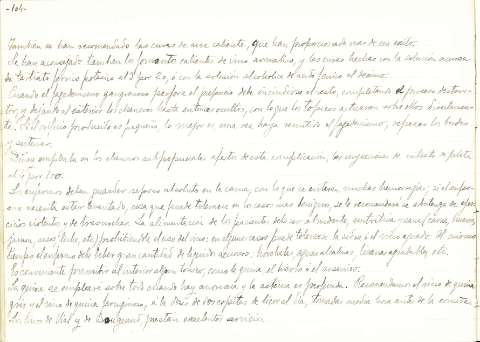 -104-
También se han recomendado las curas de aire caliente, que han proporcionado mas de un éxito.
Se han aconsejado tambien los fomentos calientes de vino aromático, y las curas hechas con la solución acuosa
de tartrato férrico potásico al 3 por 20, ó con la solución alcohólica de
Cuando el fagedenismo gangrenoso perfore el prepucio debe incindirse el resto, completando el proceso destruc-
tor, y dejando al exterior los chancros hasta entonces ocultos, con lo que los tópicos actuaran sobre ellos directamen-
te. Si el orificio producido es pequeño, lo mejor es una vez haya remitido el fagedenismo, reparar los bordes
y suturar.
empleaba en los chancros subprepuciales afectos de esta complicación, las inyecciones de nitrato de plata
al 4 por 100.
Los enfermos deben guardar reposo absoluto en la cama, con lo que se evitaran muchas hemorragias; si el enfer-
mo necesita estar levantado, cosa que puede tolerarse en los casos mas benignos, se le recomendará se abstenga de ejer-
cicios violentos y de trasnochar. La alimentación de los pacientes debe ser abundante, nutritiva y sana (carne, huevos,
jamon, aves, leche, etc.) prohibiendole el uso del vino; en algunos casos puede tolerarse la sidra ó el vino aguado. Al mismo
tiempo el enfermo debe beber gran cantidad de liquido acuoso, horchata, aguas alcalinas, tisanas agradables, etc.
Es conveniente prescribir al interior algun tónico, como la quina el hierro ó el arsénico.
La quina se empleará sobre todo cuando hay anorexia y la astenia es profunda. Recomendamos el vino de quina
gris ó el vino de quina ferruginoso, á la dosis de dos copitas de licor al dia, tomadas media hora ante de la comida.
Los vinos de Vial y de Bugeaud, prestan excelentes servicios.